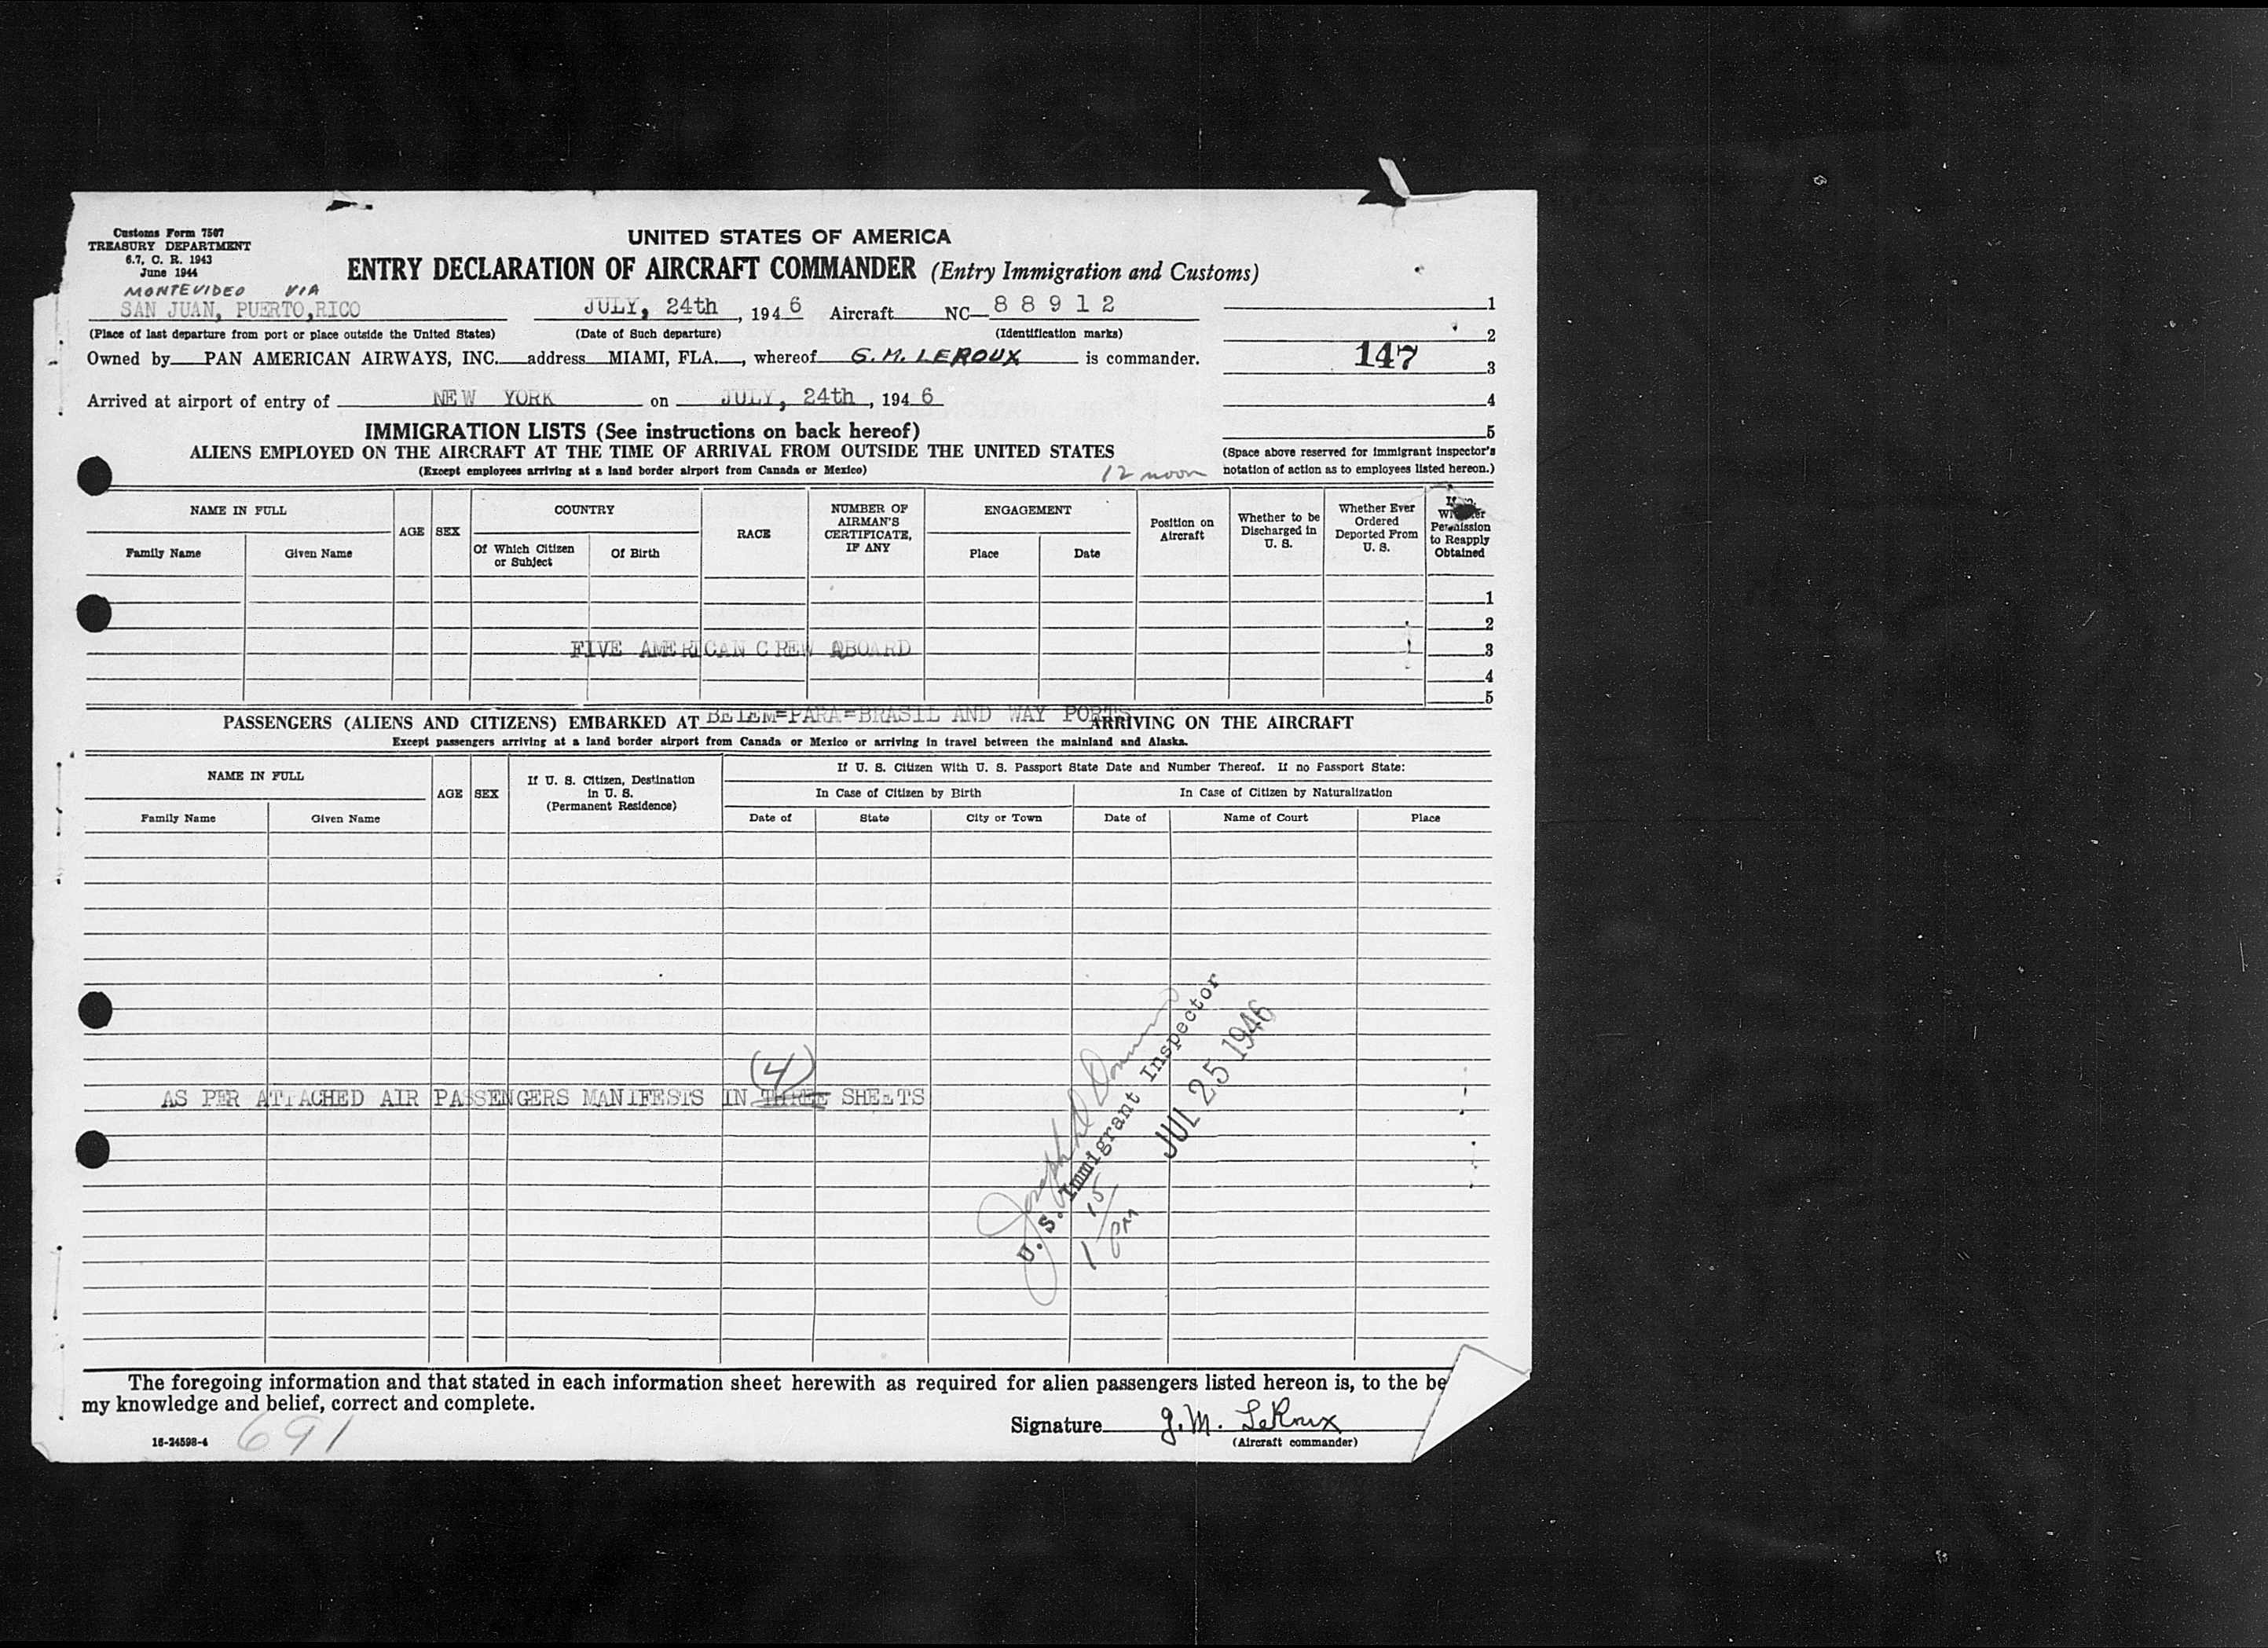 Customs Form 7507
TREASURY DEPARTMENT
6.7, C. R. 1943
June 1944
UNITED STATES OF AMERICA
ENTRY DECLARATION OF AIRCRAFT COMMANDER (Entry Immigration and Customs)
MONTEVIDEO VIA
SAN JUAN, PUERTO,RICO JULY, 24th, 1946 Aircraft NC—88912
(Place of last departure from port or place outside the United States) (Date of Such departure) (Identification marks)
Owned by PAN AMERICAN AIRWAYS, INC. address MIAMI, FLA., whereof G.M. LEROUX is commander.
Arrived at airport of entry of NEW YORK on JULY, 24th, 1946
1
2
147
3
4
5
(Space above reserved for immigrant inspector's notation of action as to employees listed hereon.)
IMMIGRATION LISTS (See instructions on back hereof)
ALIENS EMPLOYED ON THE AIRCRAFT AT THE TIME OF ARRIVAL FROM OUTSIDE THE UNITED STATES
(Except employees arriving at a land border airport from Canada or Mexico)
12 noon
NAME IN FULL
Family Name Given Name
AGE SEX
COUNTRY
Of Which Citizen or Subject Of Birth
RACE
NUMBER OF AIRMAN'S CERTIFICATE, IF ANY
ENGAGEMENT
Place Date
Position on Aircraft
Whether to be Discharged in U. S.
Whether Ever Ordered Deported From U. S.
Permission to Reapply Obtained
1
2
FIVE AMERICAN CREW ABOARD 3
4
5
PASSENGERS (ALIENS AND CITIZENS) EMBARKED AT BELEM=PARA=BRASIL AND WAY PORTS ARRIVING ON THE AIRCRAFT
Except passengers arriving at a land border airport from Canada or Mexico or arriving in travel between the mainland and Alaska.
NAME IN FULL
Family Name Given Name
AGE SEX
If U. S. Citizen, Destination in U. S. (Permanent Residence)
If U. S. Citizen With U. S. Passport State Date and Number Thereof. If no Passport State:
In Case of Citizen by Birth In Case of Citizen by Naturalization
Date of State City or Town Date of Name of Court Place
(4)
AS PER ATTACHED AIR PASSENGERS MANIFESTS IN THREE SHEETS
U. S. Immigrant Inspector
JUL 25 1946
1 15 PM
The foregoing information and that stated in each information sheet herewith as required for alien passengers listed hereon is, to the be
my knowledge and belief, correct and complete.
Signature G.M. LeRoux
(Aircraft commander)
16-24598-4
691